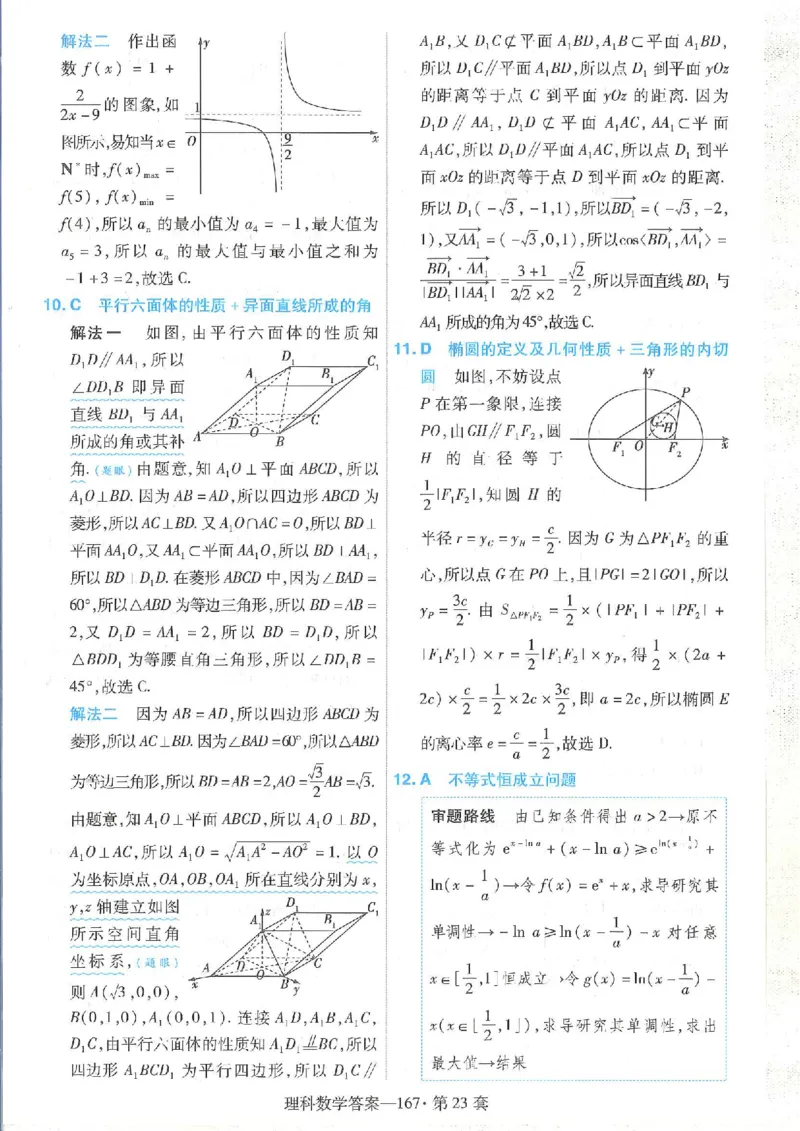 解法二 作出函
数 f(x) = 1 +
2/(2x-9) 的图象,如
图所示,易知当 x∈
N*时,f(x)max =
f(5), f(x)min =
f(4),所以 aₙ 的最小值为 a₄ = -1,最大值为
a₅ = 3,所以 aₙ 的最大值与最小值之和为
-1+3=2,故选 C.
y
1
O
9/2
x
10. C 平行六面体的性质+异面直线所成的角
解法一 如图,由平行六面体的性质知
D₁D∥AA₁,所以
∠DD₁B 即异面
直线 BD₁ 与 AA₁
所成的角或其补
D₁
C₁
A₁
B₁
D
C
A
O
B
角.(题眼)由题意,知 A₁O⊥平面 ABCD,所以
A₁O⊥BD.因为 AB=AD,所以四边形 ABCD 为
菱形,所以 AC⊥BD.又 A₁O∩AC=O,所以 BD⊥
平面AA₁O,又 AA₁⊂平面AA₁O,所以 BD⊥AA₁,
所以 BD⊥D₁D.在菱形 ABCD 中,因为∠BAD=
60°,所以△ABD 为等边三角形,所以 BD=AB=
2,又 D₁D = AA₁ = 2,所以 BD = D₁D,所以
△BDD₁ 为等腰直角三角形,所以∠DD₁B=
45°,故选 C.
解法二 因为 AB=AD,所以四边形 ABCD 为
菱形,所以 AC⊥BD.因为∠BAD=60°,所以△ABD
为等边三角形,所以 BD=AB=2,AO=√3/2 AB=√3.
由题意,知 A₁O⊥平面 ABCD,所以 A₁O⊥BD,
A₁O⊥AC,所以 A₁O = √(A₁A²-AO²) = 1.以 O
为坐标原点,OA,OB,OA₁ 所在直线分别为 x,
y,z 轴建立如图
所示空间直角
坐标系,(题眼)
则 A(√3,0,0),
D₁
C₁
A₁
z
B₁
D
C
A
O
x
B
y
B(0,1,0),A₁(0,0,1).连接 A₁D,A₁B,A₁C,
D₁C,由平行六面体的性质知 A₁D₁⫽BC,所以
四边形 A₁BCD₁ 为平行四边形,所以 D₁C∥
A₁B,又 D₁C⊄平面 A₁BD,A₁B⊂平面 A₁BD,
所以 D₁C∥平面 A₁BD,所以点 D₁ 到平面 yOz
的距离等于点 C 到平面 yOz 的距离.因为
D₁D∥AA₁,D₁D⊄平面 A₁AC,AA₁⊂平面
A₁AC,所以 D₁D∥平面 A₁AC,所以点 D₁ 到平
面 xOz 的距离等于点 D 到平面 xOz 的距离.
所以 D₁(-√3,-1,1),所以BD₁→=(-√3,-2,
1),又AA₁→=(-√3,0,1),所以cos⟨BD₁→,AA₁→⟩=
(BD₁→·AA₁→)/(|BD₁→||AA₁→|) = (3+1)/(2√2×2) = √2/2,所以异面直线 BD₁ 与
AA₁ 所成的角为45°,故选 C.
11. D 椭圆的定义及几何性质+三角形的内切
圆 如图,不妨设点
P 在第一象限,连接
PO,由GH∥F₁F₂,圆
H 的直径等于
1/2|F₁F₂|,知圆 H 的
y
P
G
H
F₁
O
F₂
x
半径 r=y_G=y_H=c/2.因为 G 为△PF₁F₂ 的重
心,所以点 G 在 PO 上,且|PG|=2|GO|,所以
y_P=3c/2.由 S△PF₁F₂ = 1/2×(|PF₁|+|PF₂|+
|F₁F₂|)×r = 1/2|F₁F₂|×y_P,得 1/2×(2a+
2c)×c/2=1/2×2c×3c/2,即 a=2c,所以椭圆 E
的离心率 e=c/a=1/2,故选 D.
12. A 不等式恒成立问题
审题路线 由已知条件得出 a>2→原不
等式化为 e^(x-ln a)+(x-ln a)≥e^(ln(x-1/a))+
ln(x-1/a)→令 f(x)=eˣ+x,求导研究其
单调性→-ln a≥ln(x-1/a)-x 对任意
x∈[1/2,1]恒成立→令 g(x)=ln(x-1/a)-
x(x∈[1/2,1]),求导研究其单调性,求出
最大值→结果
理科数学答案—167·第 23 套